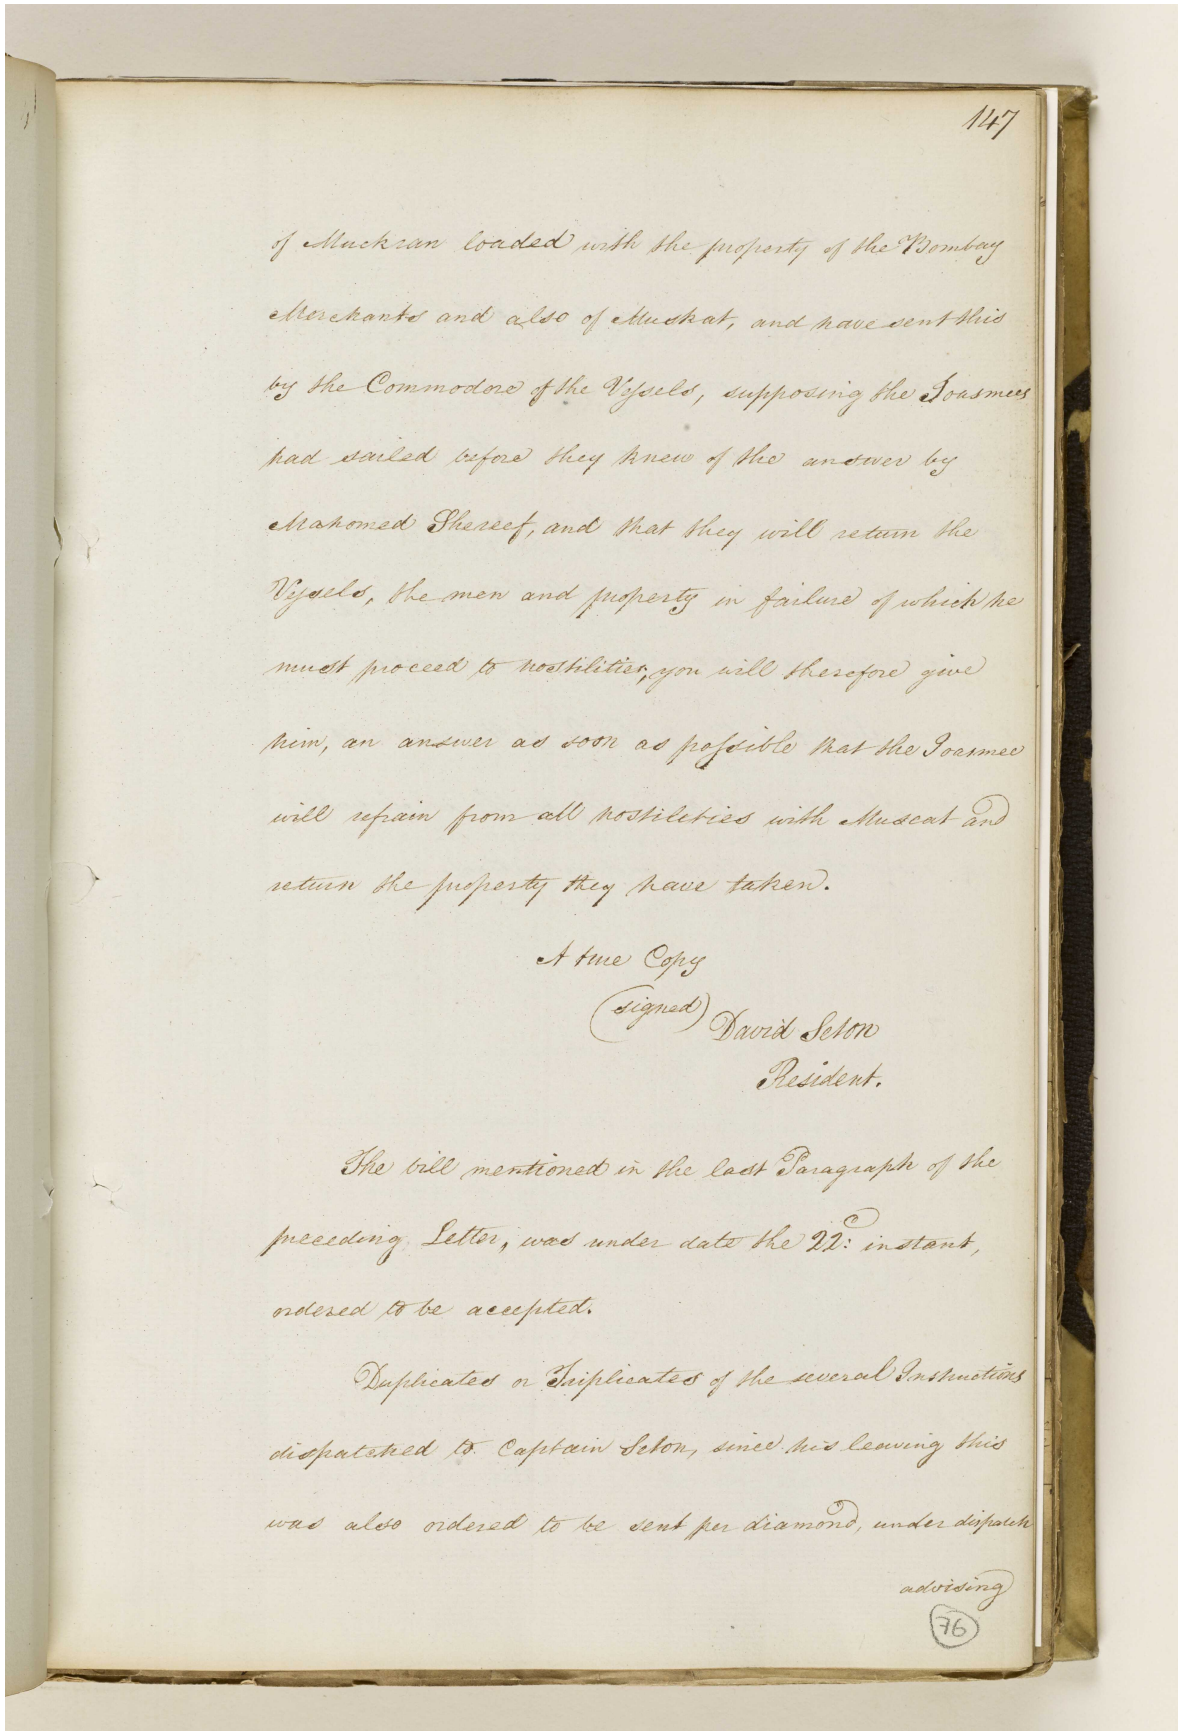 147
of Muckran loaded with the property of the Bombay
Merchants and also of Muskat, and have sent this
by the Commodore of the Vessels, supposing the Joasmees
had sailed before they knew of the answer by
Mahomed Shereef, and that they will return the
Vessels, the men and property in failure of which he
must proceed to hostilities, you will therefore give
him, an answer as soon as possible that the Joasmee
will refrain from all hostileties with Muscat and
return the property they have taken.
A true Copy
(signed) David Seton
Resident.
The bill mentioned in the last Paragraph of the
preceding Letter, was under date the 22d: instant,
ordered to be accepted.
Duplicates or Triplicates of the several Instructions
dispatched to Captain Seton, since his leaving this
was also ordered to be sent per diamond, under dispatch
advising
76